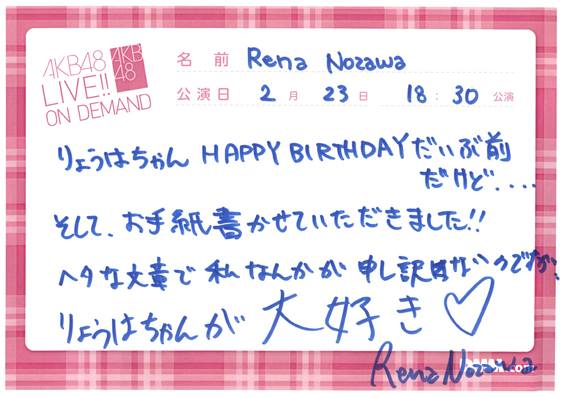 AKB48
LIVE!!
ON DEMAND
AKB
48
名前 Rena Nozawa
公演日 2月 23日 18:30 公演
りょうはちゃん HAPPY BIRTHDAY だいぶ前
だけど....
そして、お手紙書かせていただきました!!
ヘタな文章で 私なんかが 申し訳ないのですが、
りょうはちゃんが 大好き♡
Rena Nozawa
.com